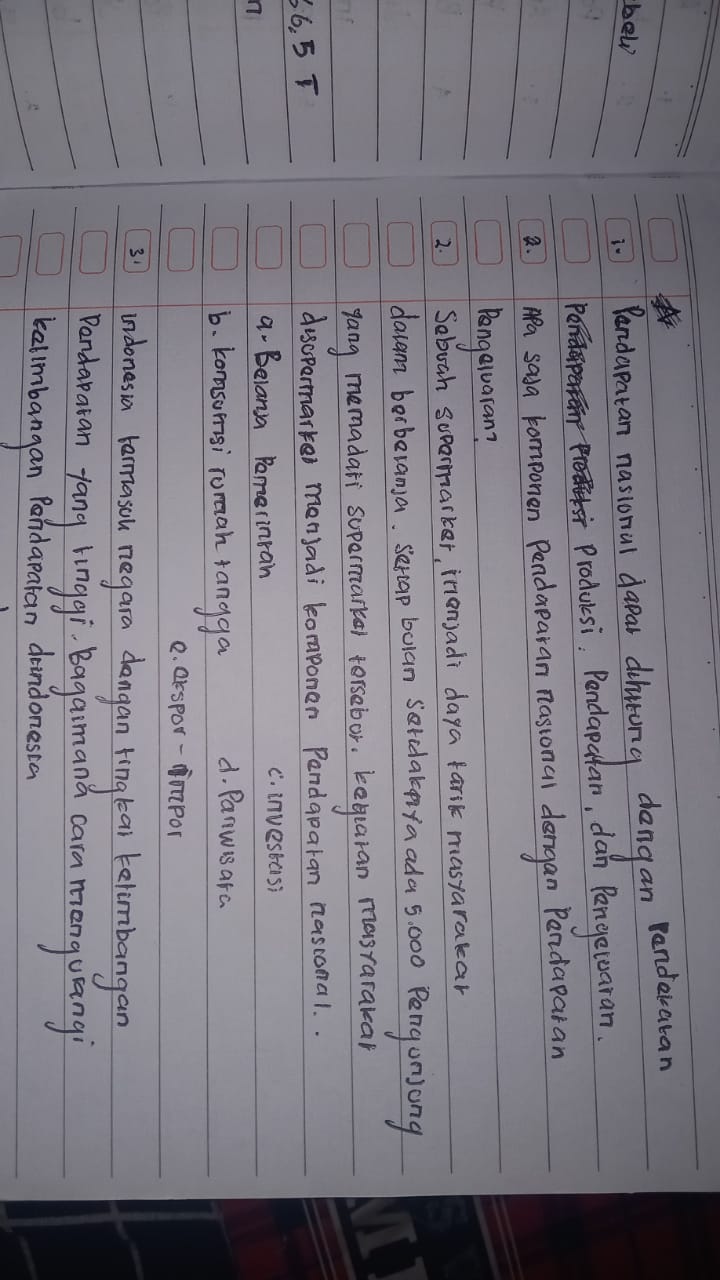 beli
66,5 T
n
1. Pendapatan nasional dapat dihitung dengan Pendekatan
Produksi, Pendapatan, dan Pengeluaran.
a. Apa saja komponen Pendapatan nasional dengan Pendapatan
Pengeluaran?
2. Sebuah supermarket, menjadi daya tarik masyarakat
dalam berbelanja. Setiap bulan setidaknya ada 5.000 Pengunjung
yang memadati supermarket tersebut. kegiatan masyarakat
disupermarket menjadi komponen Pendapatan nasional..
a. Belanja Pemerintah c. investasi
b. komsumsi rumah tangga d. Pariwisata
e. ekspor - impor
3. indonesia termasuk negara dengan tingkat ketimbangan
Pendapatan yang tinggi. Bagaimana cara mengurangi
ketimbangan Pendapatan diindonesia